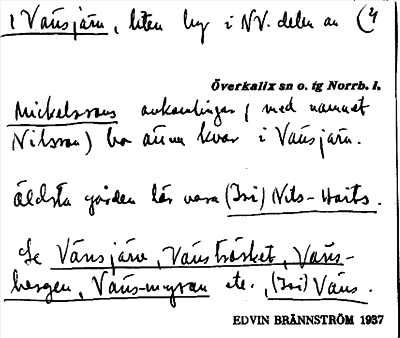 1 Vänsjärv, liten by i NV. delen av (4
Överkalix sn o. tg Norrb. l.
Mickelssons avkomlingar (med namnet
Nilsson) bo ännu kvar i Vänsjärv.
Äldsta gården lär vara (Isi) Nils-Matts.
Se Vänsjärv, Vänsträsket, Väns-
bergen, Väns-myran etc., (Isi) Väns.
EDVIN BRÄNNSTRÖM 1937